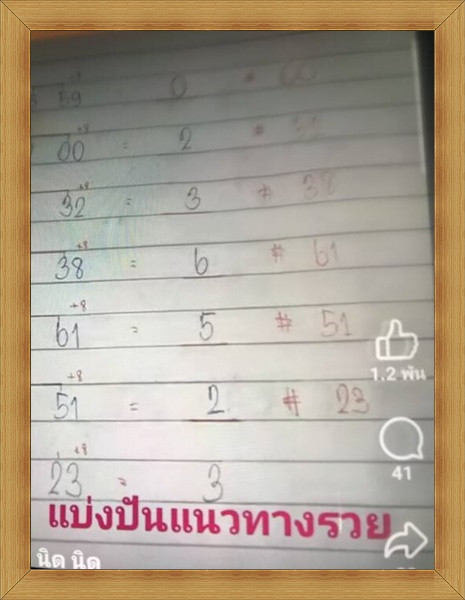 59 0 #
+8
00 = 2 #
+8
32 = 3 # 38
+8
38 = 6 # 61
+8
61 = 5 # 51
+8
51 = 2 # 23
+8
23 = 3
1.2 พัน
41
แบ่งปันแนวทางรวย
นิด นิด